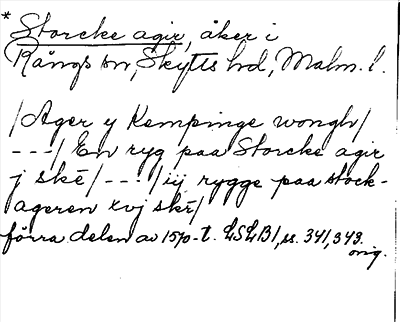 * Storcke agir, åker i
Rängs sn, Skytts hd, Malm. l.
/Ager y Kempinge wongh/
---/ En ryg paa Storcke agir
j skē/ --- /iij rygge paa stock-
ageren xvj skē/
förra delen av 1570-t. LSLB1, ss. 341, 343.
orig.